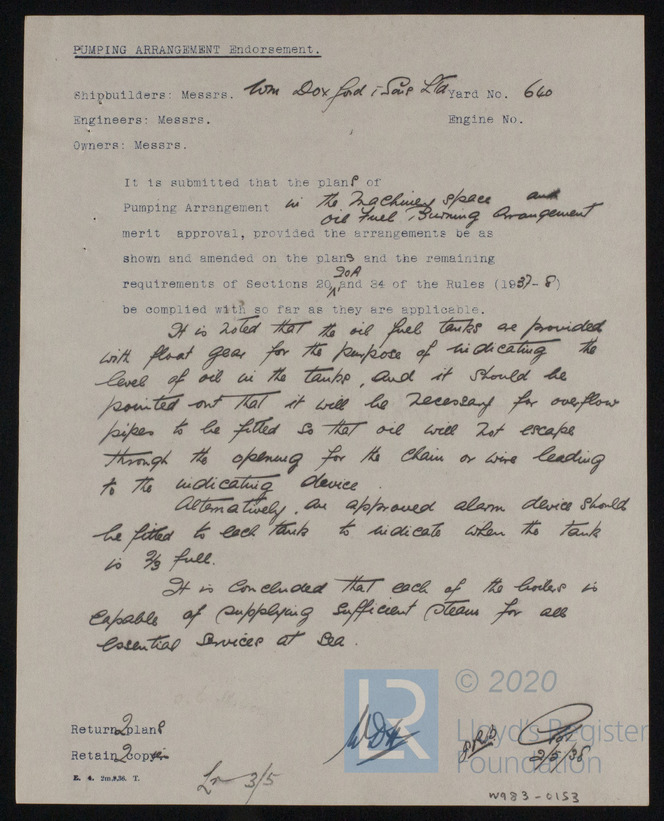 PUMPING ARRANGEMENT Endorsement.
Shipbuilders: Messrs. Wm Doxford & Sons Ltd Yard No. 640
Engineers: Messrs. Engine No.
Owners: Messrs.
It is submitted that the plans of
Pumping Arrangement in the Machinery space and
oil fuel Burning Arrangement
merit approval, provided the arrangements be as
shown and amended on the plans and the remaining
20A
requirements of Sections 20 and 34 of the Rules (1937-8)
be complied with so far as they are applicable.
It is noted that the oil fuel tanks are provided
with float gear for the purpose of indicating the
level of oil in the tanks, and it should be
pointed out that it will be necessary for overflow
pipes to be fitted so that oil will not escape
through the opening for the chain or wire leading
to the indicating device.
Alternatively, an approved alarm device should
be fitted to each tank to indicate when the tank
is 2/3 full.
It is concluded that each of the boilers is
capable of supplying sufficient steam for all
essential services at sea.
© 2020
LR
Lloyd's Register
Foundation
Return 2 plans
Retain 2 copies
E. 4. 2m.9.36. T.
3/5
2/5/38
W983-0153